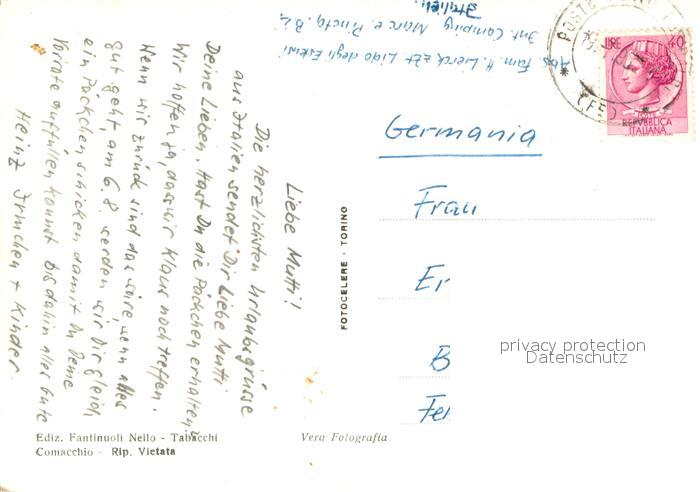 Liebe Mutti!
Die herzlichsten Urlaubsgrüsse
aus Italien sendet Dir Liebe Mutti
Deine Lieben. Hast Du die Päckchen erhalten?
Wir hoffen ja, dass wir Klaus noch treffen.
Wenn wir zurück sind das wäre, wenn alles
gut geht, am 6.8. werden wir Dir gleich
ein Päckchen schicken damit Du Deine
Vorräte auffüllen kannst bis dahin alles Gute
Heinz Irmchen + Kinder.
Abs Fam. H. Lierck zZt Lido degli Estensi
Int. Camping Mare e Pineta
Italien.
POSTE
LIRE 40
POSTE
REPVBBLICA
ITALIANA
Germania
Frau
Er
B
Fe
FOTOCELERE - TORINO
privacy protection
Datenschutz
Ediz. Fantinuoli Nello - Tabacchi
Comacchio - Rip. Vietata
Vera Fotografia